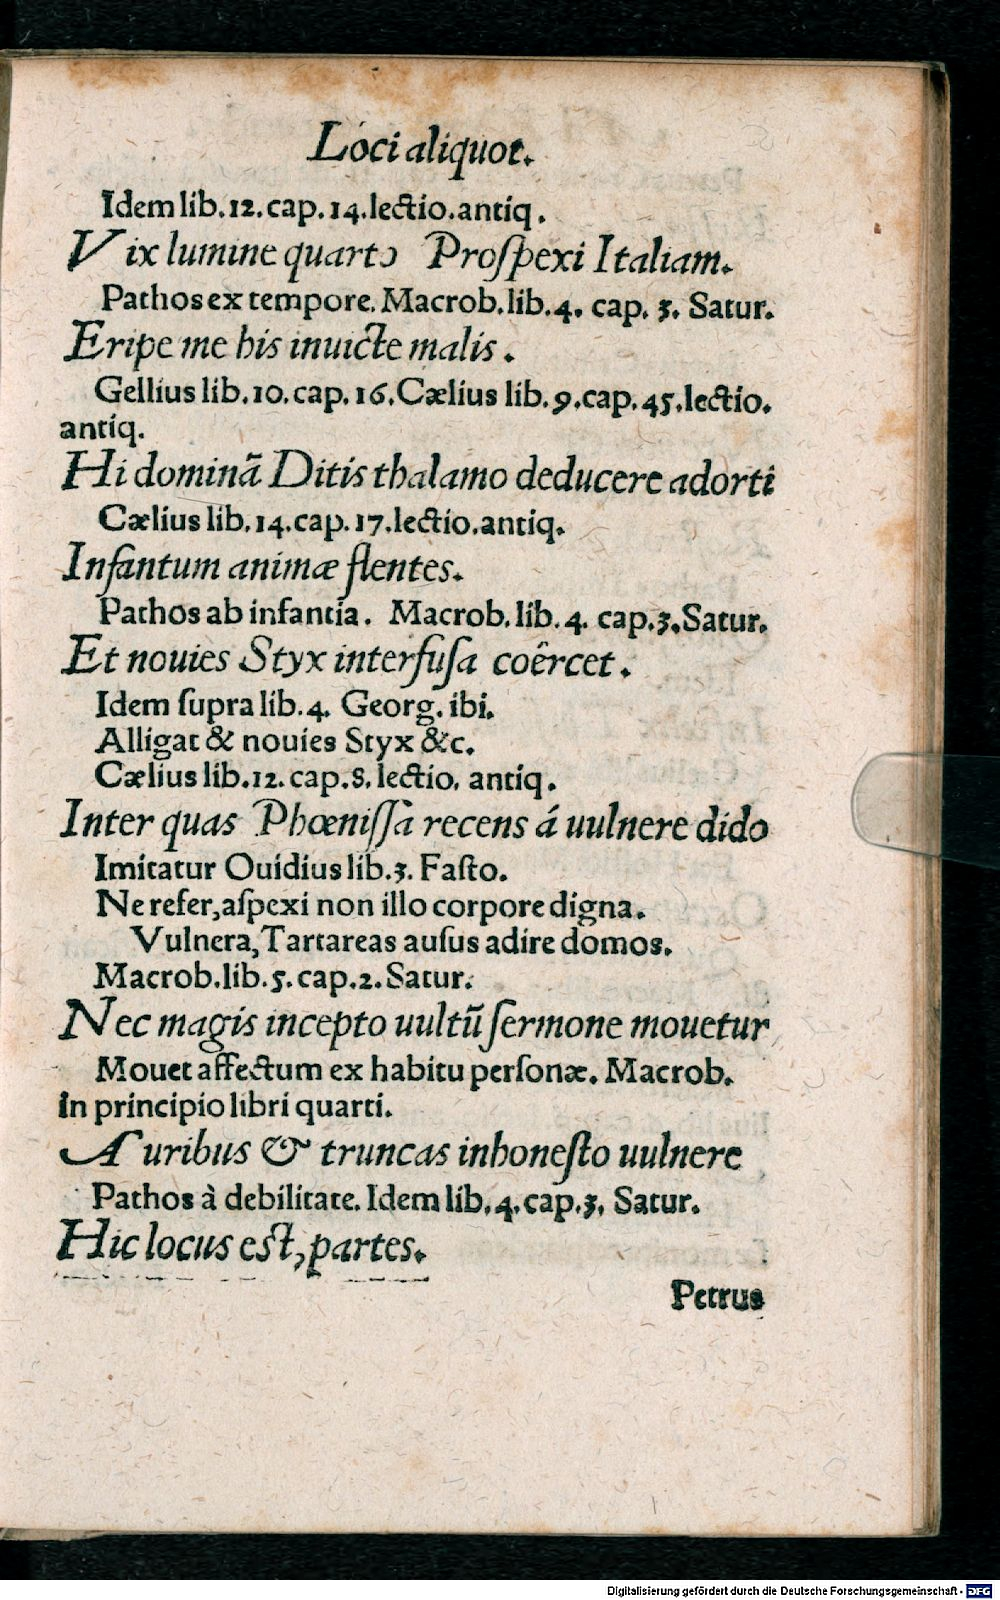 Loci aliquot.
Idem lib. 12. cap. 14. lectio. antiq.
Vix lumine quarto Prospexi Italiam.
Pathos ex tempore. Macrob. lib. 4. cap. 3. Satur.
Eripe me his inuicte malis.
Gellius lib. 10. cap. 16. Cælius lib. 9. cap. 45. lectio.
antiq.
Hi dominã Ditis thalamo deducere adorti
Cælius lib. 14. cap. 17. lectio. antiq.
Infantum animæ flentes.
Pathos ab infantia. Macrob. lib. 4. cap. 3. Satur.
Et nouies Styx interfusa coêrcet.
Idem supra lib. 4. Georg. ibi.
Alligat & nouies Styx &c.
Cælius lib. 12. cap. 8. lectio. antiq.
Inter quas Phœnissa recens á uulnere dido
Imitatur Ouidius lib. 3. Fasto.
Ne refer, aspexi non illo corpore digna.
Vulnera, Tartareas ausus adire domos.
Macrob. lib. 5. cap. 2. Satur.
Nec magis incepto uultũ sermone mouetur
Mouet affectum ex habitu personæ. Macrob.
in principio libri quarti.
Auribus & truncas inhonesto uulnere
Pathos à debilitate. Idem lib. 4. cap. 3. Satur.
Hic locus est, partes.
Petrus
Digitalisierung gefördert durch die Deutsche Forschungsgemeinschaft - DFG